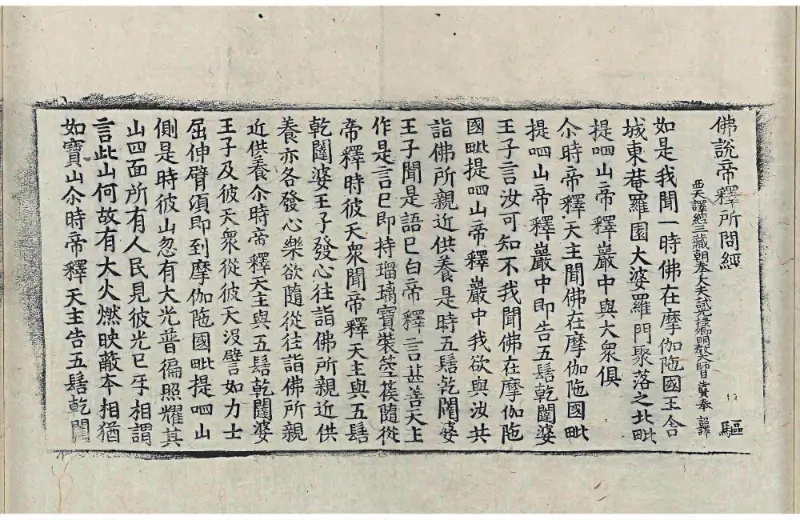 佛說帝釋所問經　驅
西天譯經三藏朝奉大夫試光祿卿明教大師臣法賢奉 詔譯
如是我聞一時佛在摩伽陁國王舍
城東菴羅園大婆羅門聚落之北毗
提呬山帝釋巖中與大衆俱
尒時帝釋天主聞佛在摩伽陁國毗
提呬山帝釋巖中即告五髻乾闥婆
王子言汝可知不我聞佛在摩伽陁
國毗提呬山帝釋巖中我欲與汝共
詣佛所親近供養是時五髻乾闥婆
王子聞是語已白帝釋言甚善天主
作是言已即持瑠璃寶裝箜篌隨從
帝釋時彼天衆聞帝釋天主與五髻
乾闥婆王子發心往詣佛所親近供
養亦各發心樂欲隨從往詣佛所親
近供養尒時帝釋天主與五髻乾闥婆
王子及彼天衆從彼天沒譬如力士
屈伸臂頃即到摩伽陁國毗提呬山
側是時彼山忽有大光普徧照耀其
山四面所有人民見彼光已互相謂
言此山何故有大火燃映蔽本相猶
如寶山尒時帝釋天主告五髻乾闥